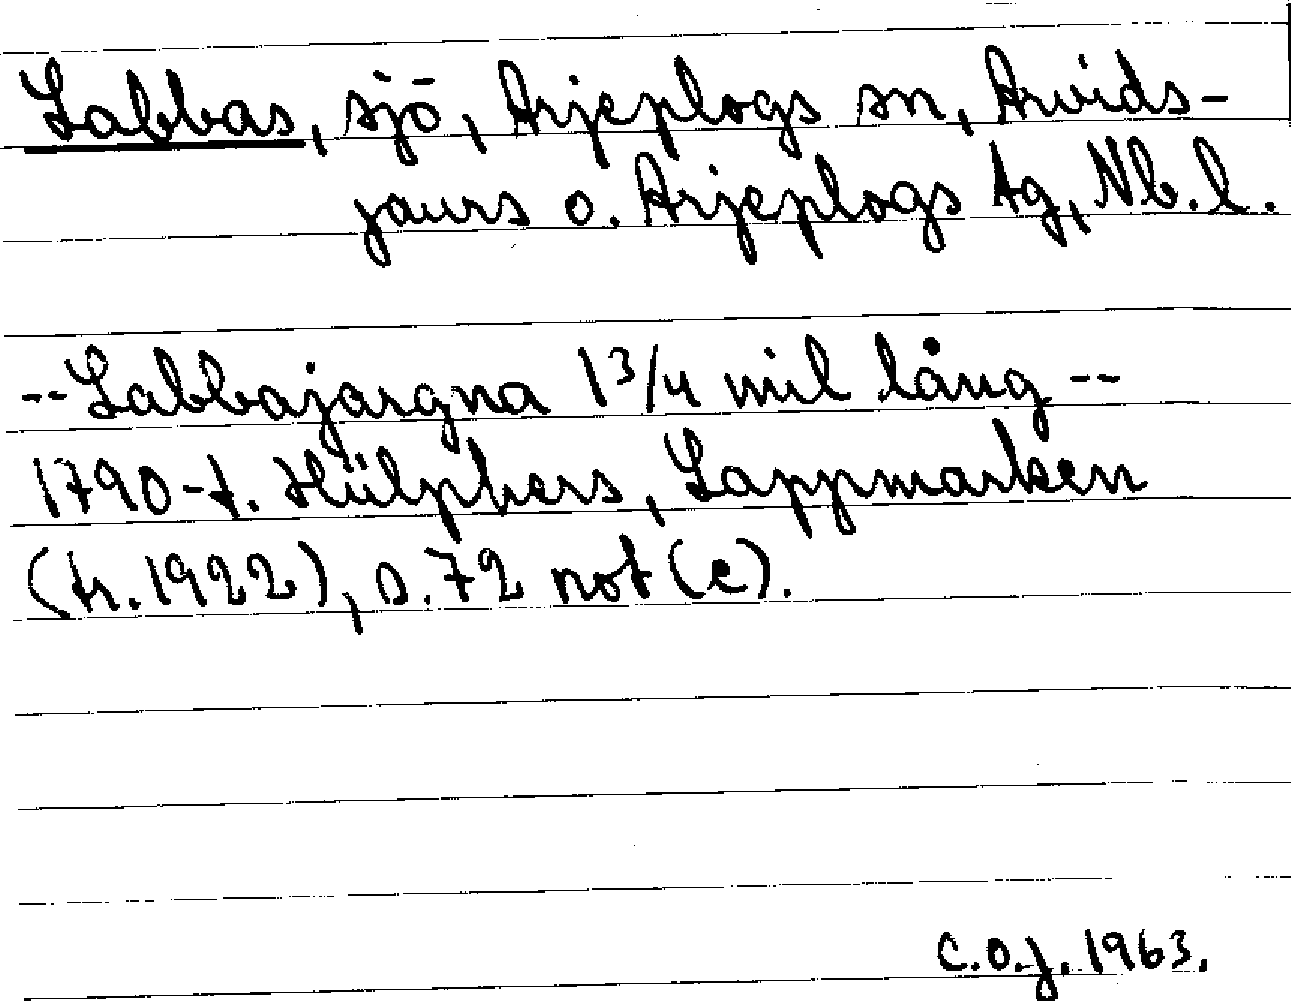 Labbas, sjö, Arjeplogs sn, Arvids-
jaurs o. Arjeplogs tg, Nb. l.
-- Labbajargna 1 3/4 mil lång --
1790-t. Hülphers, Lappmarken
(tr. 1922), s. 72 not (c).
C.O.J. 1963.